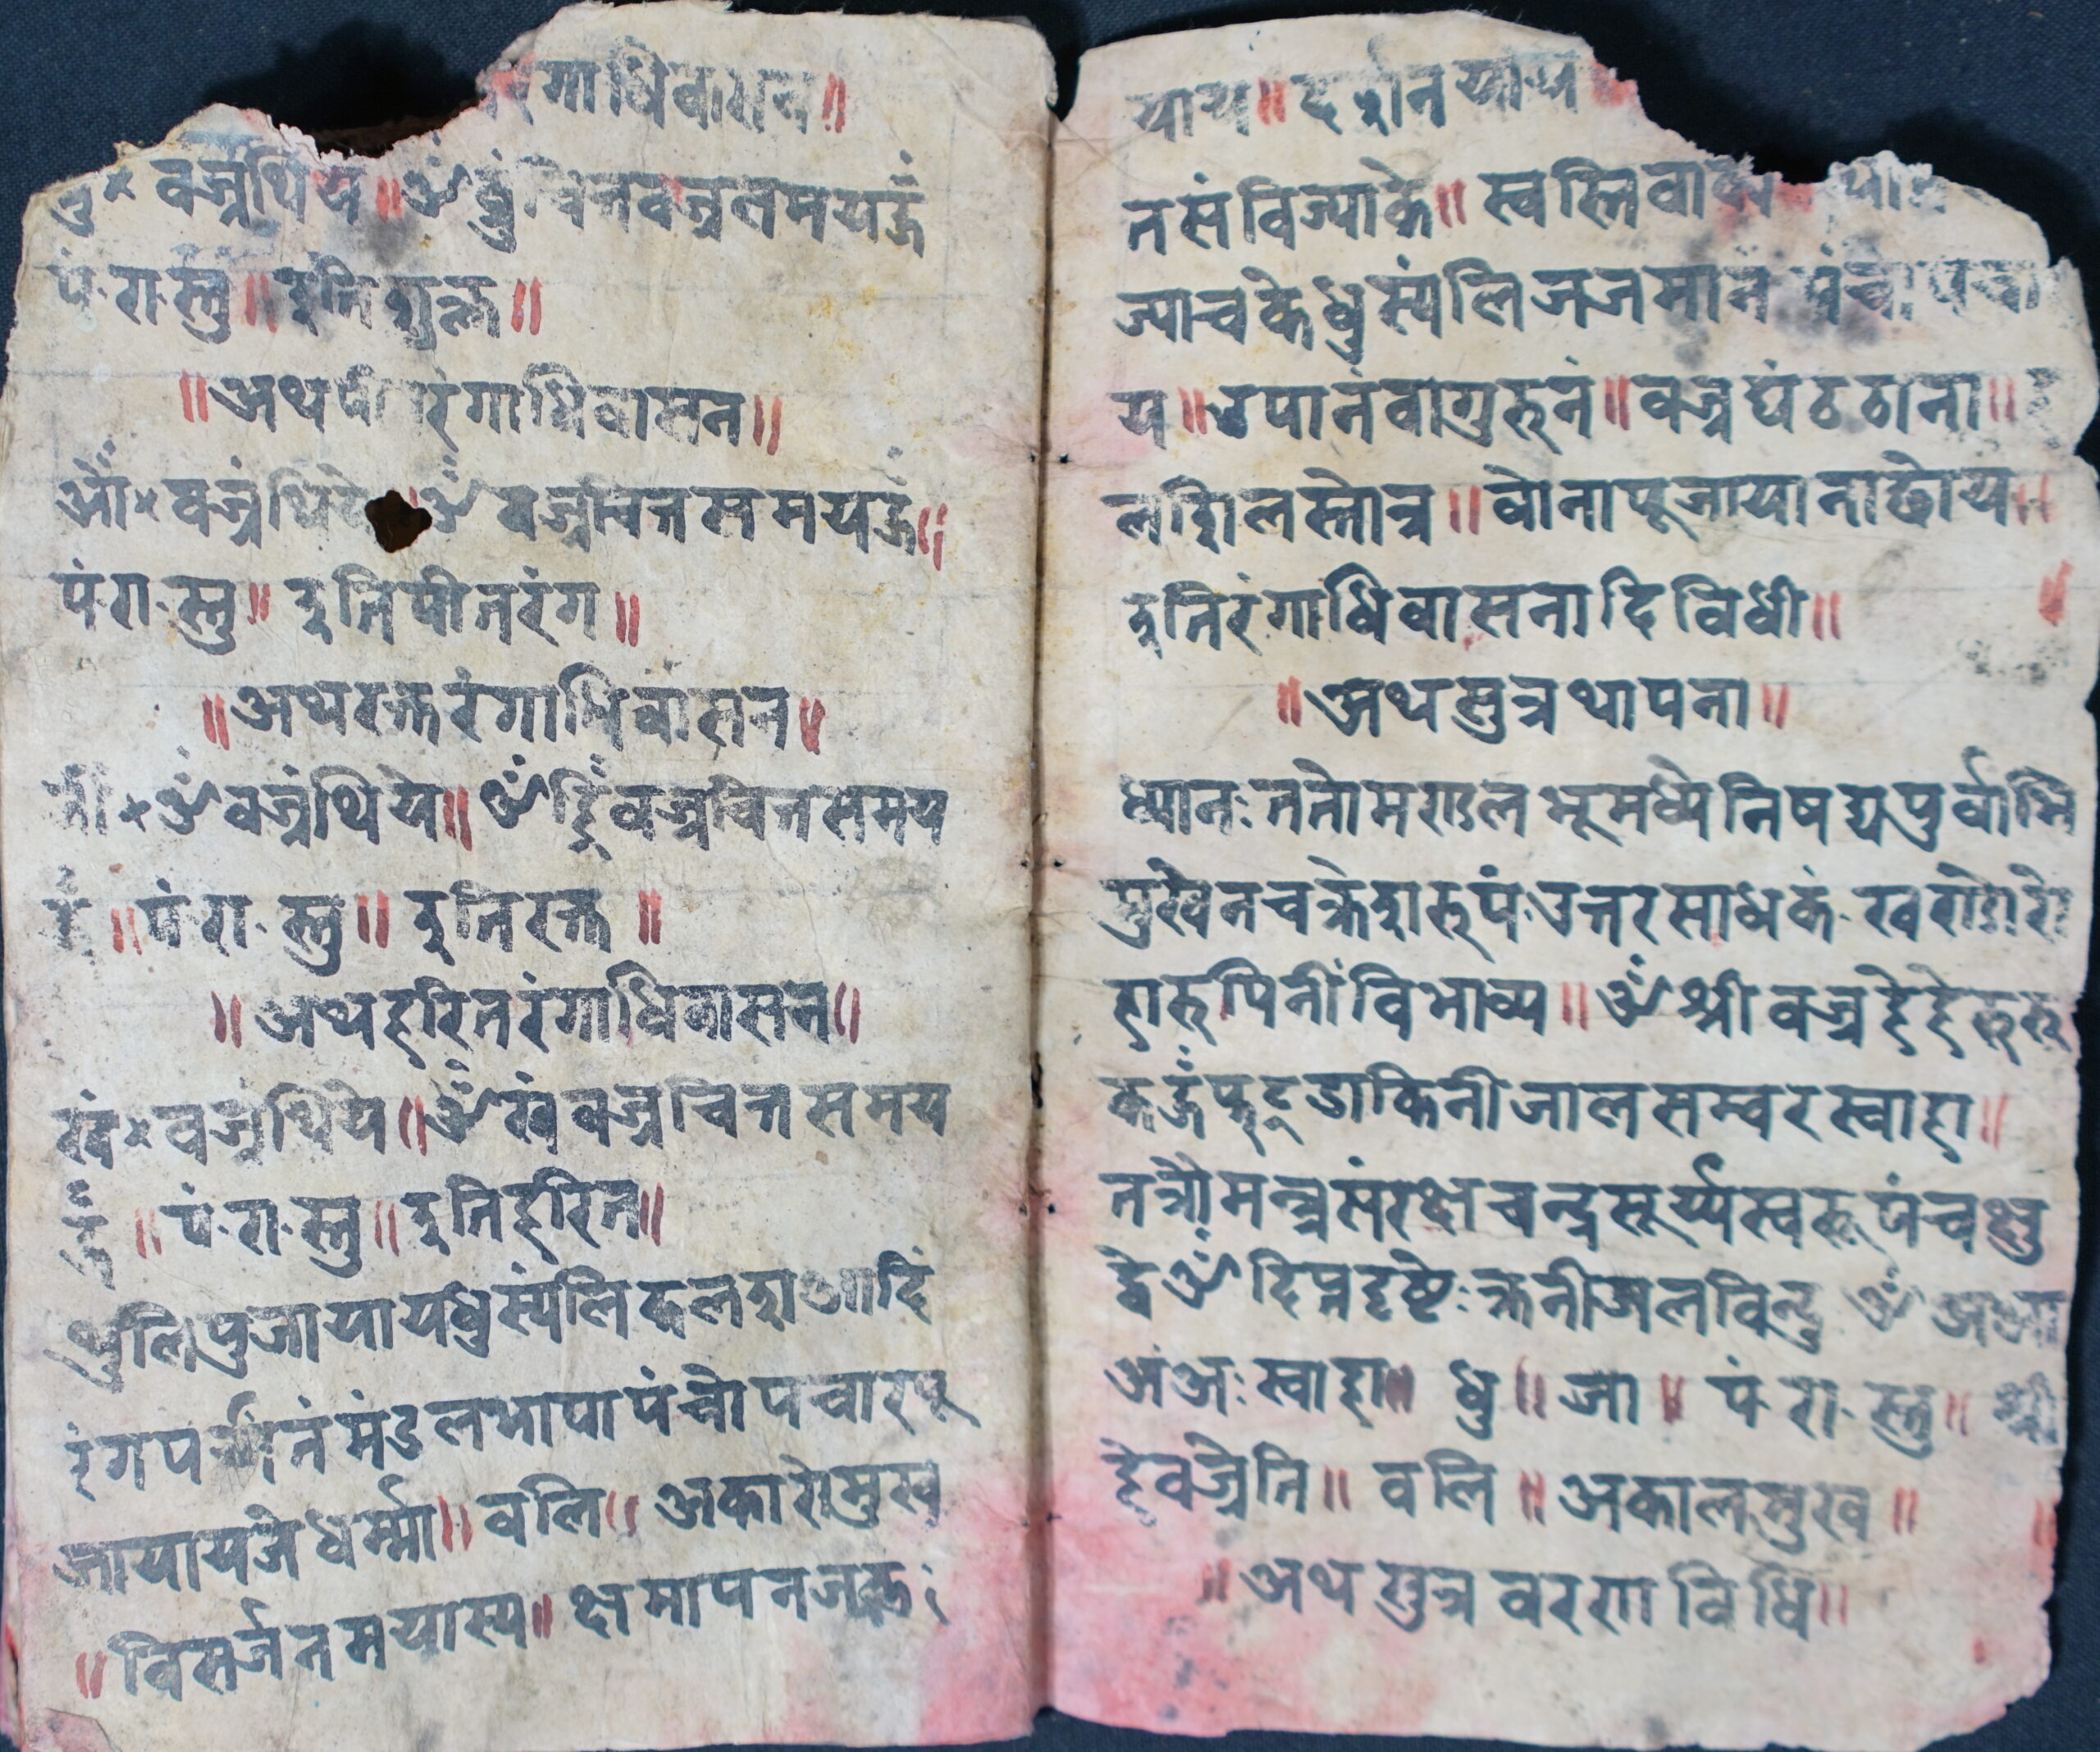 रंगाधिवासन॥
वज्रंथिय॥ ॐ चित्तवज्रसमयहूँ
पं·रा·स्तु॥ इति शुक्ल॥
॥अथ पी रंगाधिवासन॥
ओं× वज्रंथिये ॐ वज्रचित्तसमयहूँ॥
पं·रा·स्तु॥ इतिपीतरंग॥
॥अथरक्तरंगाधिवासन॥
×ॐ वज्रंथिये॥ ॐ वज्रचित्तसमय
हूँ॥ पं·रा·स्तु॥ इतिरक्त॥
॥अथहरितरंगाधिवासन॥
खं× वज्रंथिये॥ ॐ खं वज्रचित्तसमय
हूँ॥ पं·रा·स्तु॥ इतिहरित॥
थुलिपुजायायधुस्यंलिकलशआदिं
रंगप नंमंडलभापापंचोपचारपू
जायाययेधर्म्मा॥ वलि॥ अकारोमुख
॥विसर्जनमयास्य॥ क्षमापन
याय॥ दर्शनयाय
नसंविज्याके॥ स्वस्तिवा
ज्याचकेधुस्यंलिजजमानं पंचोपचा
य॥ उपानंवागुरुनं॥ वज्रघंठठाना॥
लस्तोत्र॥ वोनापूजायानाछोय॥
इतिरंगाधिवासनादिविधी॥
॥अथसुत्रथापना॥
ध्यान: ततोमण्डलभूमध्येनिषद्यपुर्वाभि
मुखेनचक्रेशरूपं·उत्तरसाधकं·खवरोशे
हारूपिनींविभाव्य॥ ॐ श्रीवज्रहेहेरुरु
कहूँफट्डाकिनीजालसम्वरस्वाहा॥
तत्रौमन्त्रसंरक्षचन्द्रसूर्य्यस्वरूपंचक्षु
द्वेॐ दिप्तदृष्टे: क्तनीजलविन्दु ॐ अआ
अंअ: स्वाहा॥ धु॥ जा॥ पं·रा·स्तु॥ श्री
हेवज्रेति॥ वलि॥ अकालमुख॥
॥अथसुत्रवरणविधि॥